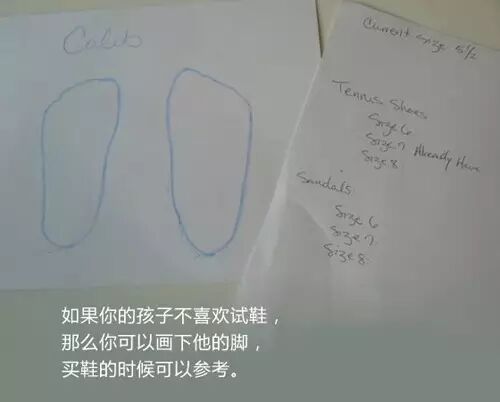 Caleb
Current Size 5 1/2
Tennis Shoes
Size 6
Size 7 Already Have
Size 8
Sandals:
Size 6
Size 7
Size 8
如果你的孩子不喜欢试鞋，
那么你可以画下他的脚，
买鞋的时候可以参考。